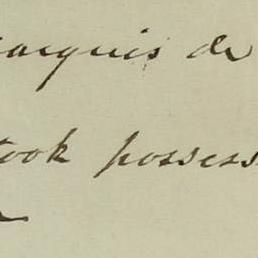 arquis de
took possess